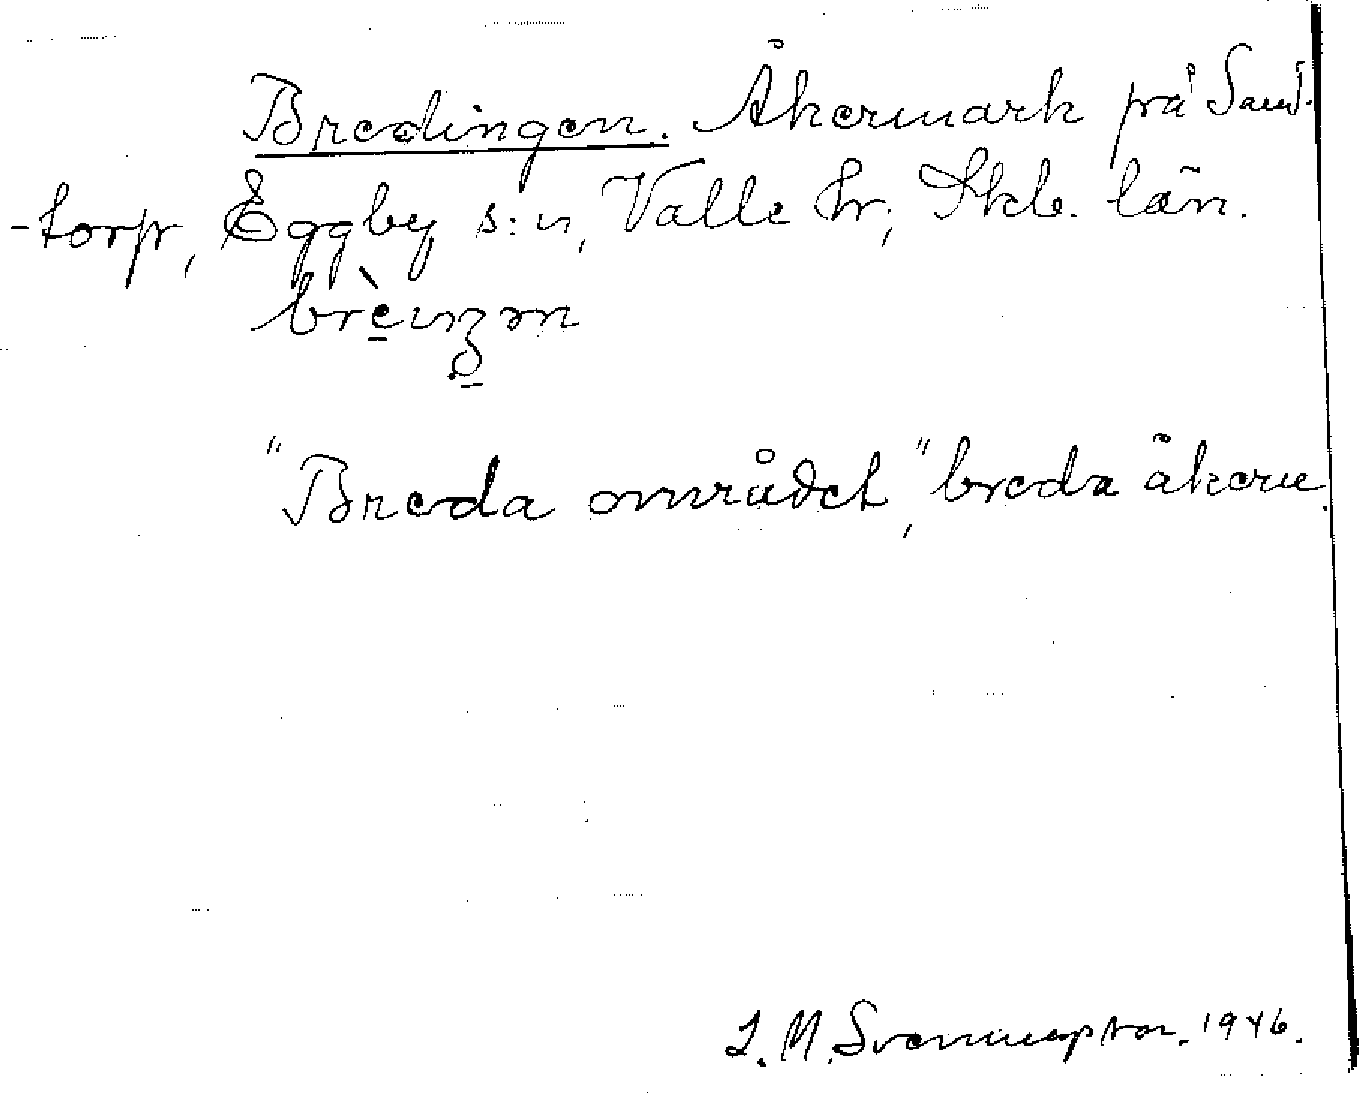 Bredingen. Åkermark på Sand-
-torp, Eggby s:n, Valle hr, Skb. län.
"Breda området," breda åkern.
L. M. Svenungsson. 1946.